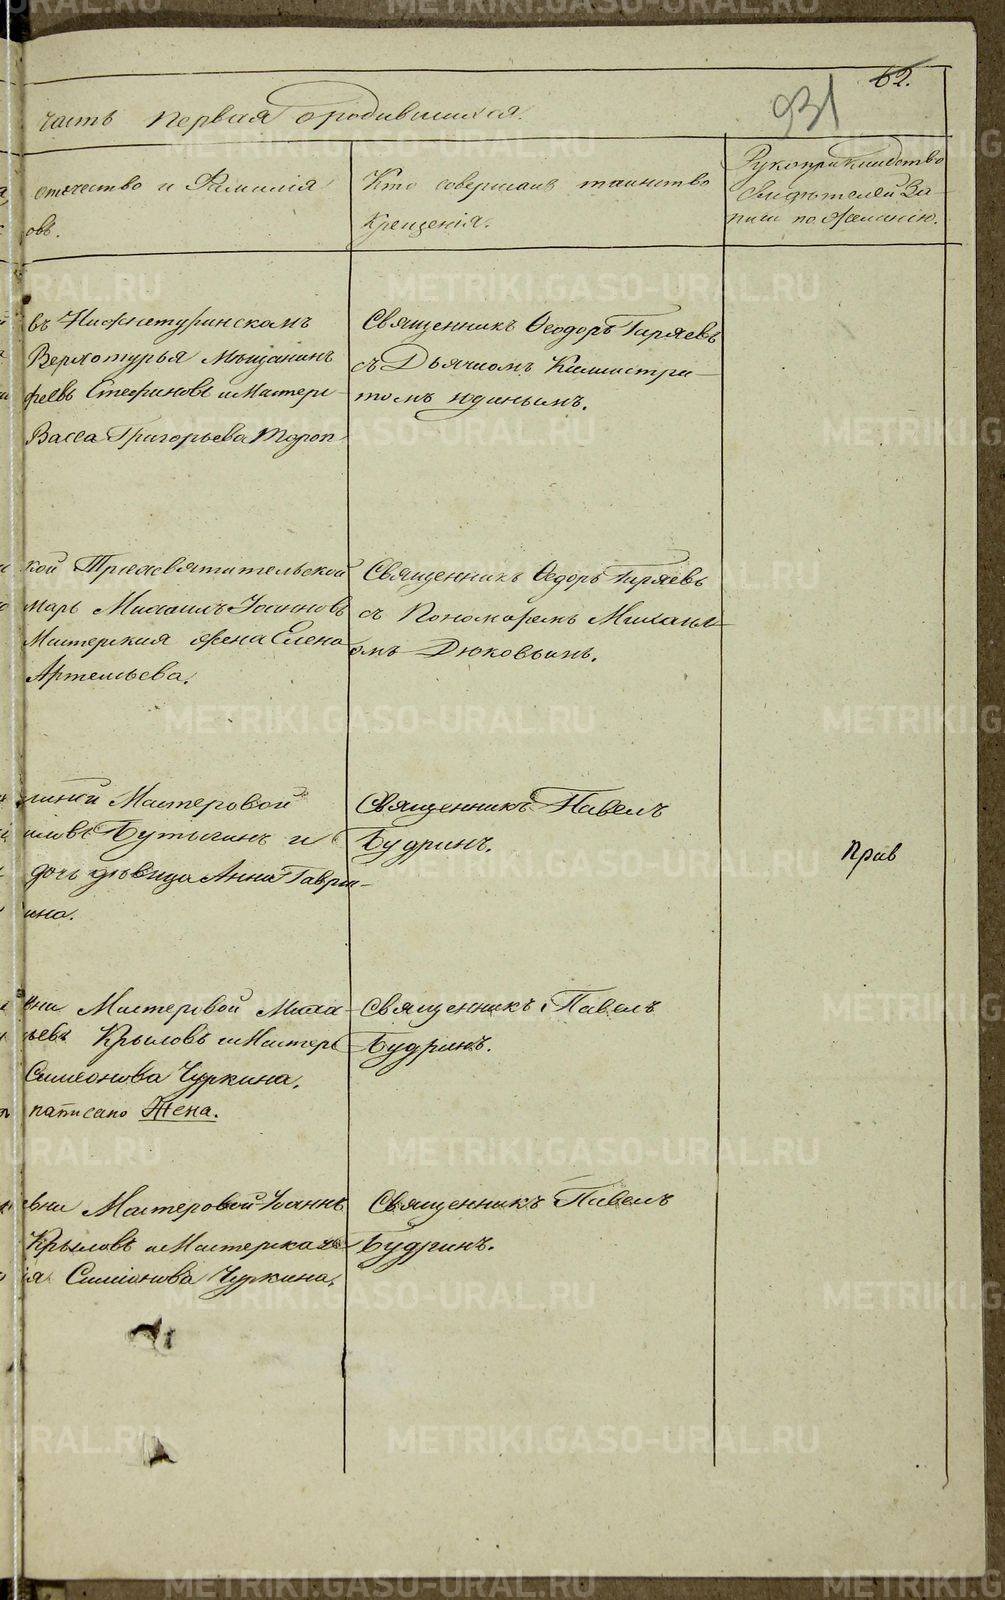 62.
931
часть первая о родившихся.
отчество и Фамилія
овъ.
Кто совершалъ таинство
Крещенія.
Рукоприкладство
свидѣтелей За-
писи по желанію.
въ Нижнетуринскомъ
Верхотурья Мѣщанинъ
феевъ Стефановъ и Мастерс-
Васса Григорьева Тороп-
Священникъ Ѳеодоръ Гиряевъ
съ Дьячкомъ Каллистра-
томъ Юдинымъ.
кой Трехсвятительской
марь Михаилъ Іоанновъ
Мастерская жена Елена
Артемьева.
Священникъ Ѳедоръ Гиряевъ
съ Пономаремъ Михаил-
омъ Дюковымъ.
Мастеровой
иловъ Бутыгинъ и
дочь дѣвица Анна Гаври-
ина.
Священникъ Павелъ
Будринъ.
Прав
вни Мастеровой Миха-
ьевъ Крыловъ и Мастерс
Симеонова Чуркина.
написано Жена.
Священникъ Павелъ
Будринъ.
евни Мастеровой Іоаннъ
Крыловъ и Мастерская
ія Симеонова Чуркина.
Священникъ Павелъ
Будринъ.
METRIKI.GASO-URAL.RU